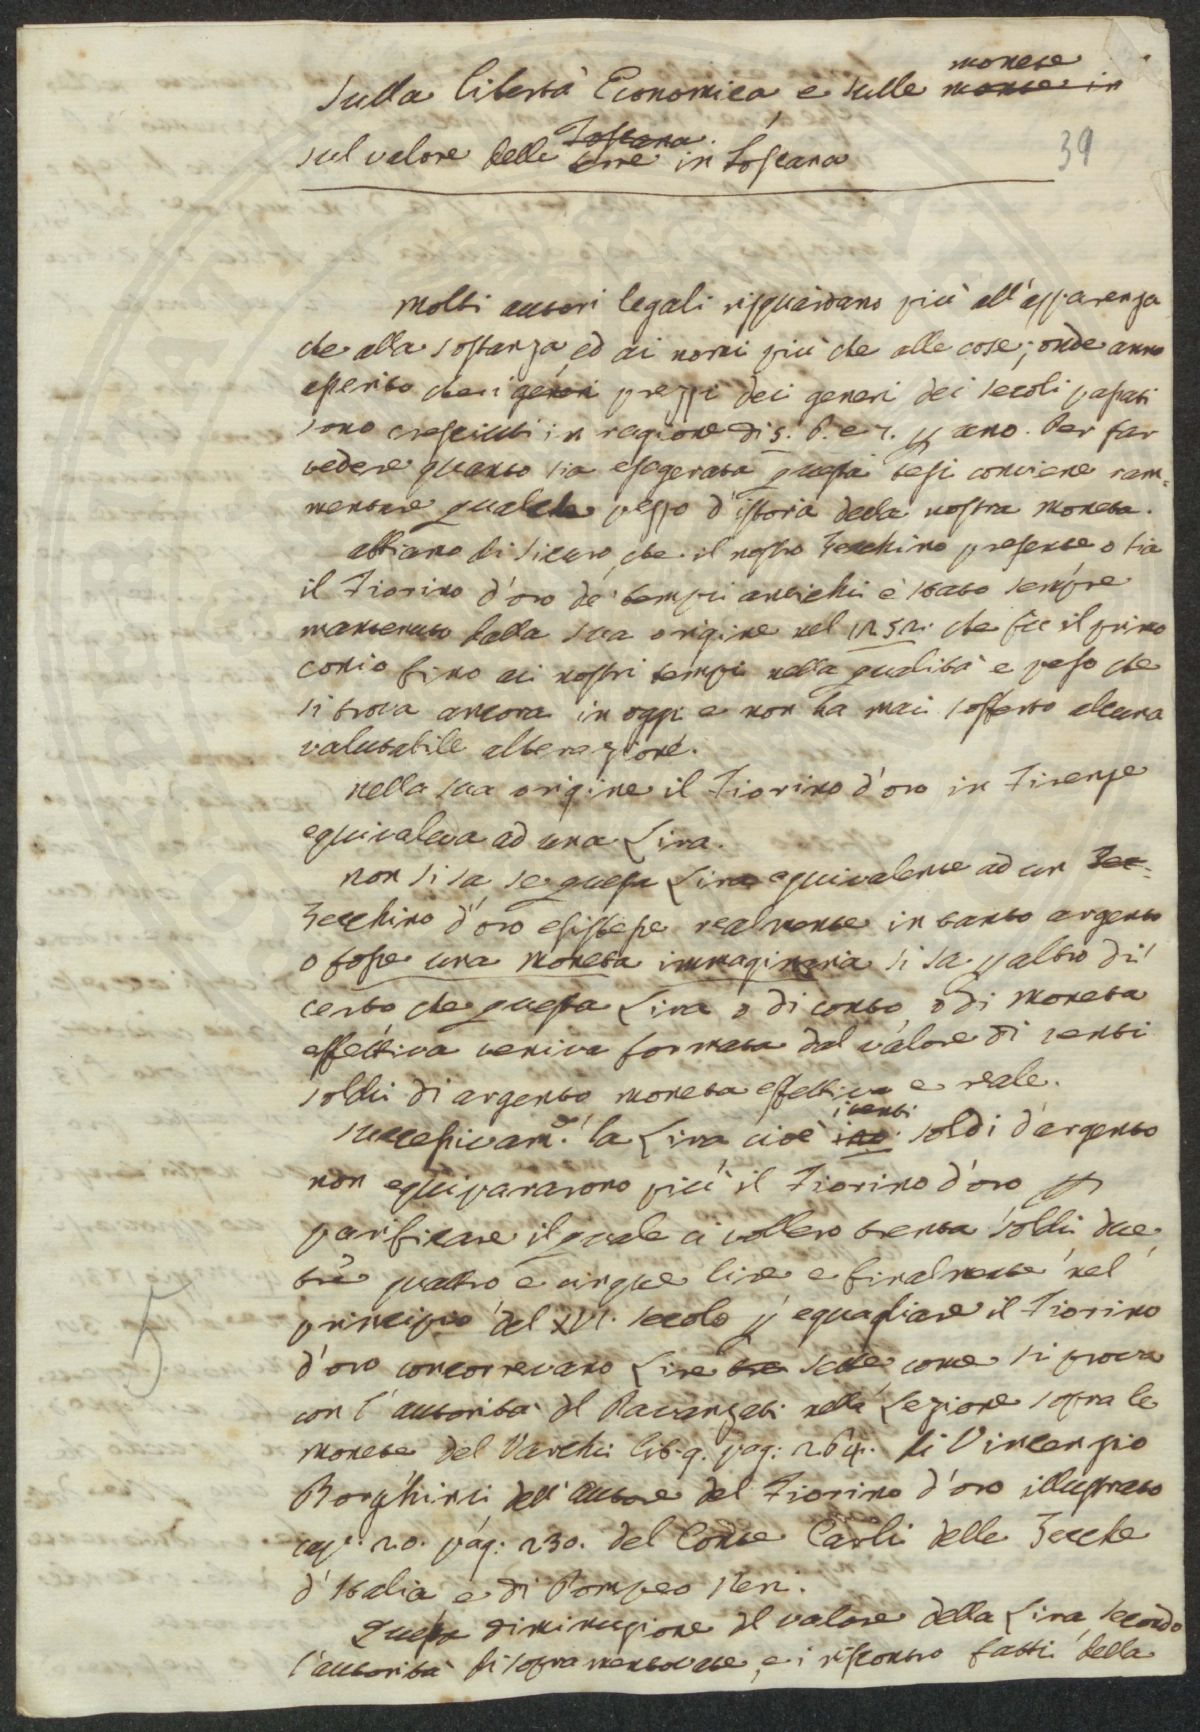 monete
Sulla libertà Economica, e sulle monete in
Toscana.
sul valore delle terre in Toscana
39
Molti autori legali risguardano più all'apparenza
che alla sostanza, ed ai nomi più che alle cose; onde anno
asserito che i generi prezzi dei generi dei secoli passati
sono cresciuti in ragione di 5. P. e 7. p ano. Per far
vedere quanto sia esagerata questa tesi conviene ram=
mentare qualche pezzo d'istoria della nostra moneta.
abbiamo di sicuro, che il nostro Zecchino presente o sia
il Fiorino d'oro de' tempi antichi è stato sempre
mantenuto dalla sua origine nel 1252. che fù il primo
conio fino ai nostri tempi nella qualità e peso che
si trova ancora in oggi e non ha mai sofferto alcuna
valutabile alterazione.
nella sua origine il Fiorino d'oro in Firenze
equivaleva ad una Lira.
non si sa se questa Lira equivalente ad un Zec=
Zecchino d'oro esistesse realmente in tanto argento
o fosse una moneta immaginaria si sa p altro di
certo che questa Lira o di conto, o di moneta
effettiva veniva formata dal valore di venti
soldi di argento moneta effettiva e reale.
i venti
successivam.e la Lira cioè i 20. soldi d'argento
non equipararono più il Fiorino d'oro p
parificare il quale ci vollero trenta soldi due,
trè quattro e cinque lire e finalmente nel
principio del XVI. secolo p eguagliare il Fiorino
d'oro concorrevano Lire tre sette, come si prova
con l'autorità del Davanzati nella Lezione sopra le
monete del Varchi lib. 9. pag: 264. di Vincenzio
Borghini dell'autore del Fiorino d'oro illustrato
cap: 20. pag: 230. del Conte Carli delle Zecche
d'Italia e di Pompeo Neri.
5
Questa diminuzione del valore della Lira secondo
l'autorità di sopra mentovate, e i riscontro fatti della